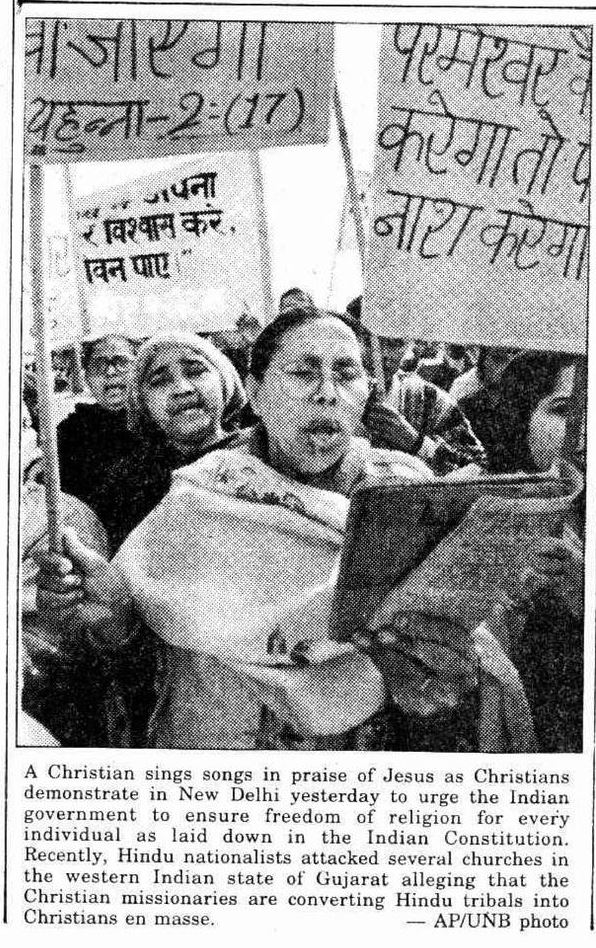 जाएगा
यूहन्ना-2:(17)
अपना
विश्वास करे,
पाए।"
परमेश्वर
करेगा तो
नाश करेगा
A Christian sings songs in praise of Jesus as Christians
demonstrate in New Delhi yesterday to urge the Indian
government to ensure freedom of religion for every
individual as laid down in the Indian Constitution.
Recently, Hindu nationalists attacked several churches in
the western Indian state of Gujarat alleging that the
Christian missionaries are converting Hindu tribals into
Christians en masse. — AP/UNB photo